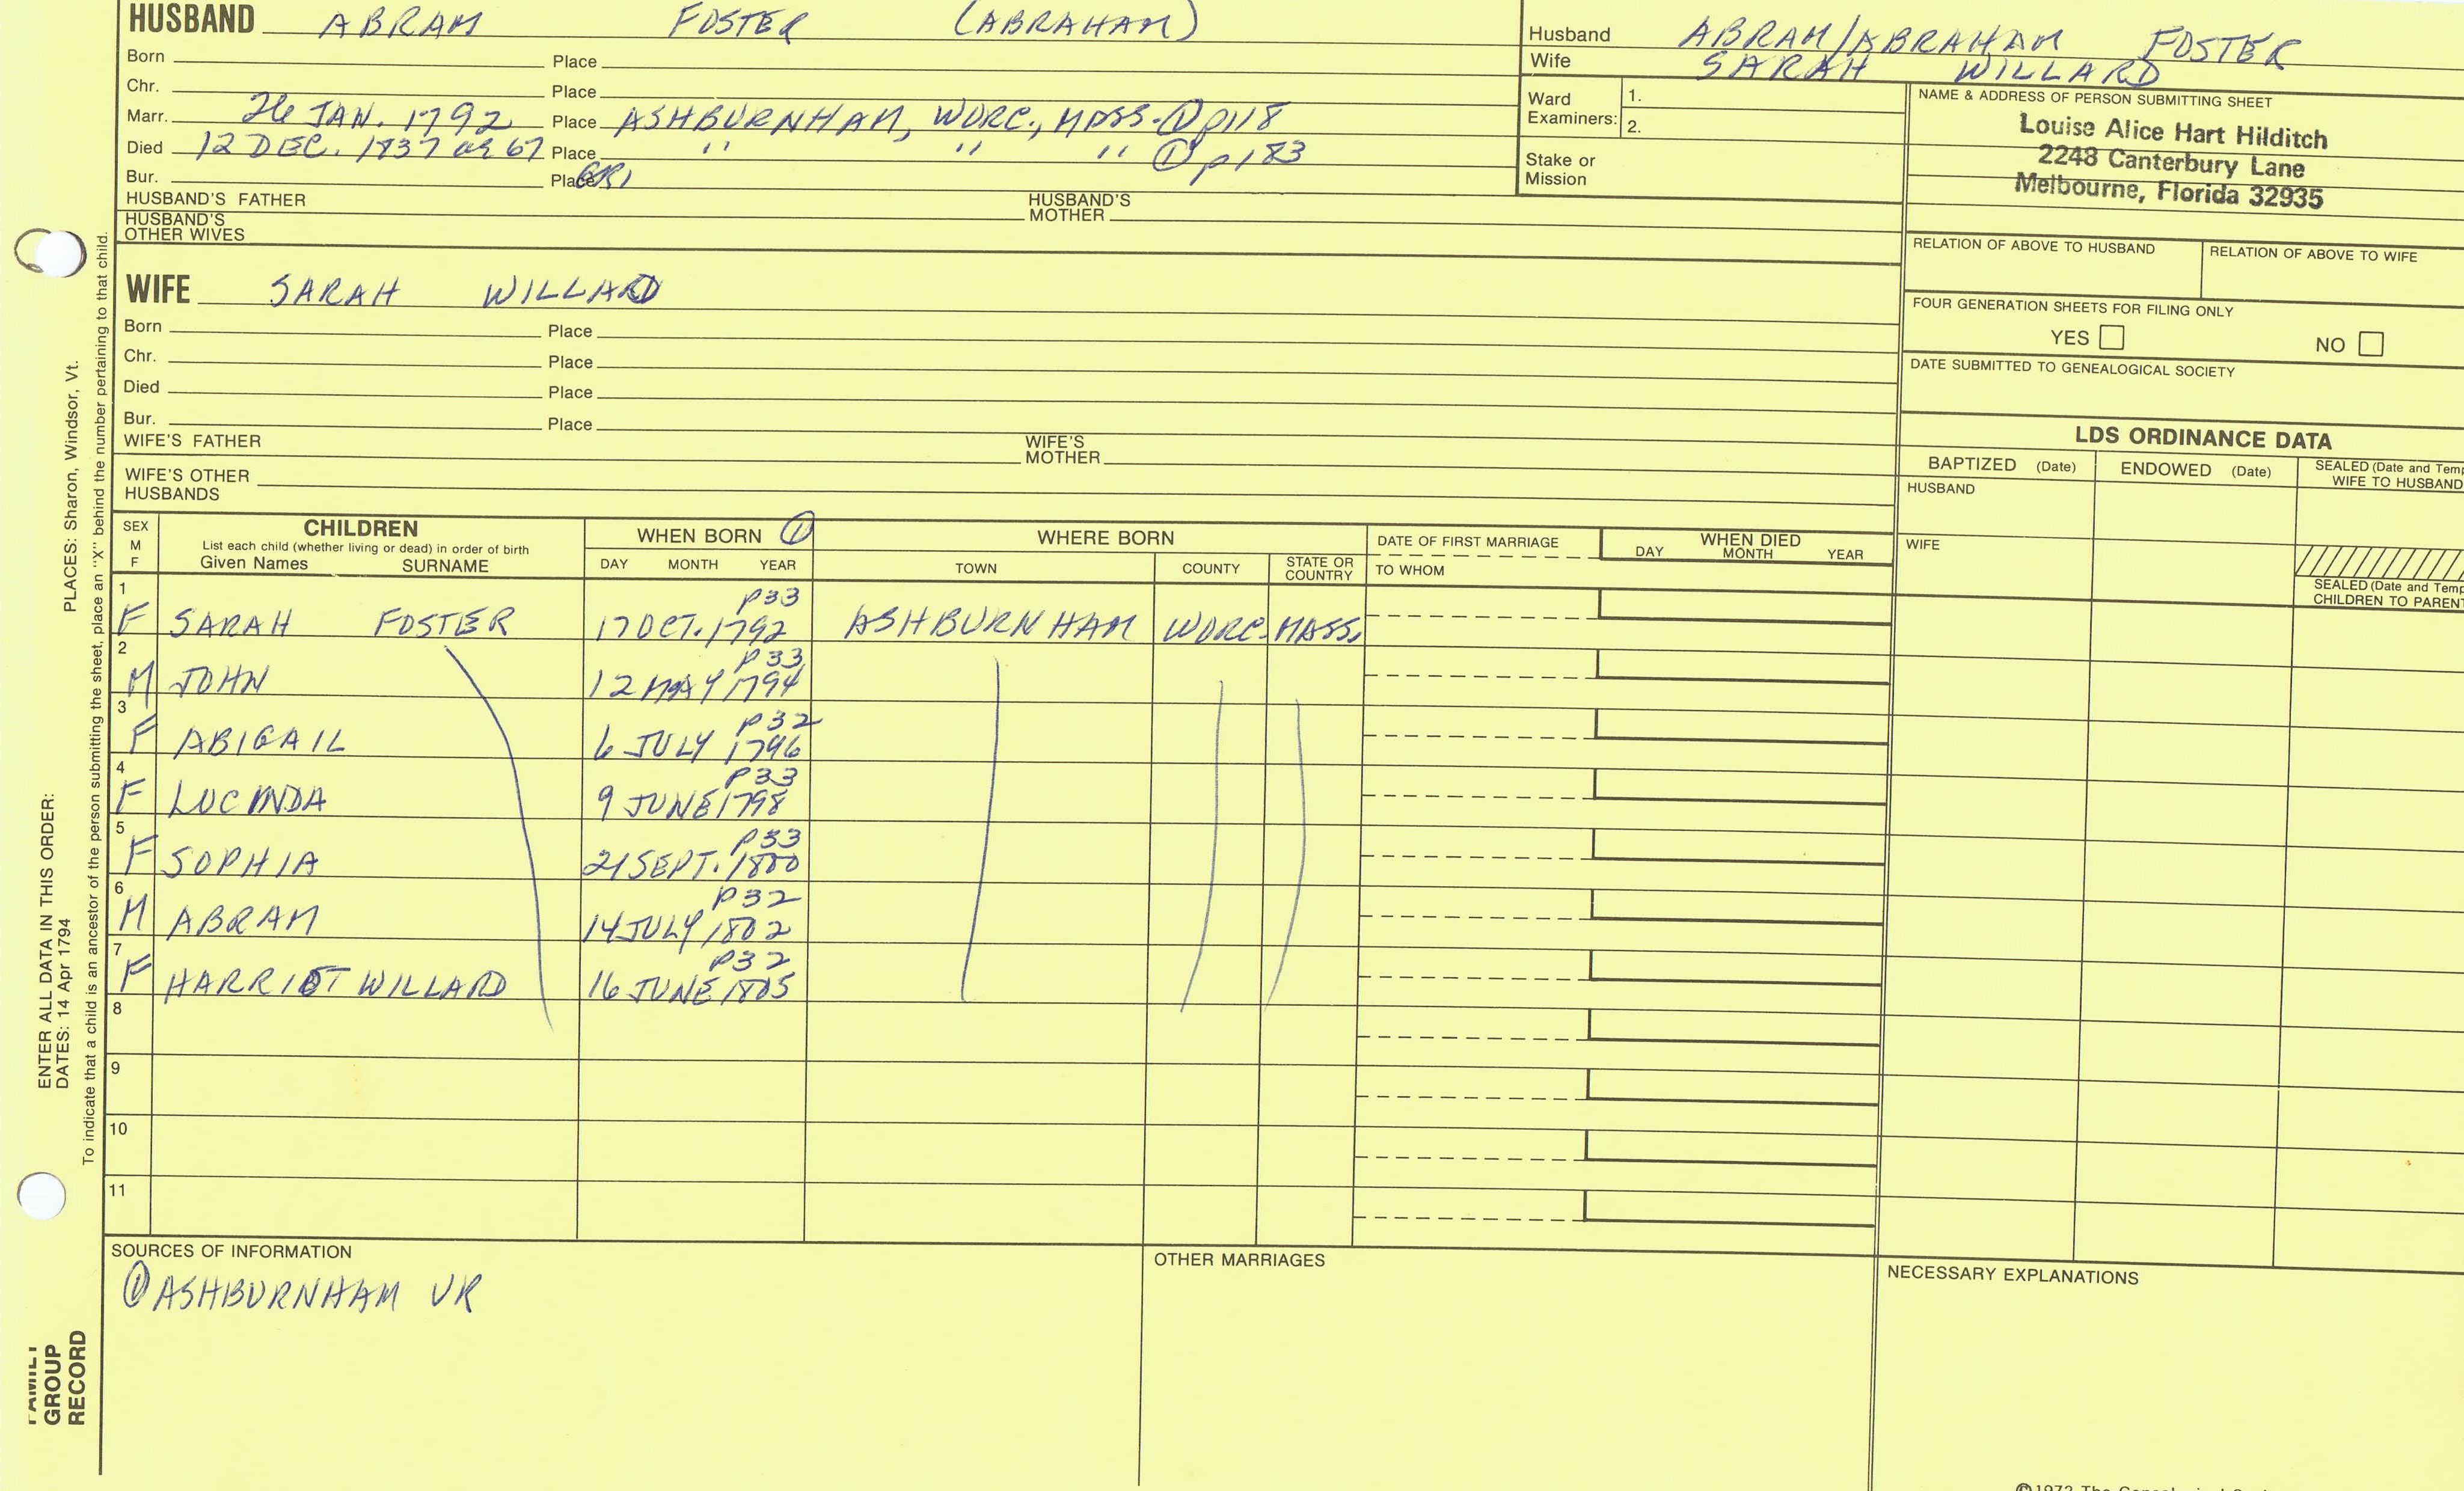 HUSBAND ABRAM FOSTER (ABRAHAM)
Born Place
Chr. Place
Marr. 26 JAN. 1792 Place ASHBURNHAM, WORC., MASS. ① p118
Died 12 DEC. 1837 ae 67 Place " " " ① p183
Bur. Place GR1
HUSBAND'S FATHER HUSBAND'S MOTHER
HUSBAND'S OTHER WIVES
Husband ABRAM/ABRAHAM FOSTER
Wife SARAH WILLARD
Ward Examiners: 1.
2.
Stake or Mission
NAME & ADDRESS OF PERSON SUBMITTING SHEET
Louise Alice Hart Hilditch
2248 Canterbury Lane
Melbourne, Florida 32935
RELATION OF ABOVE TO HUSBAND RELATION OF ABOVE TO WIFE
FOUR GENERATION SHEETS FOR FILING ONLY
YES NO
DATE SUBMITTED TO GENEALOGICAL SOCIETY
WIFE SARAH WILLARD
Born Place
Chr. Place
Died Place
Bur. Place
WIFE'S FATHER WIFE'S MOTHER
WIFE'S OTHER HUSBANDS
LDS ORDINANCE DATA
BAPTIZED (Date) ENDOWED (Date) SEALED (Date and Temp
WIFE TO HUSBAND
HUSBAND
WIFE
SEALED (Date and Temp
CHILDREN TO PARENT
SEX M F CHILDREN WHEN BORN ① WHERE BORN DATE OF FIRST MARRIAGE WHEN DIED
List each child (whether living or dead) in order of birth
Given Names SURNAME DAY MONTH YEAR TOWN COUNTY STATE OR COUNTRY TO WHOM DAY MONTH YEAR
1 P33
F SARAH FOSTER 17 OCT. 1792 ASHBURNHAM WORC. MASS.
2 P33
M JOHN 12 MAY 1794
3 P32
F ABIGAIL 6 JULY 1796
4 P33
F LUCINDA 9 JUNE 1798
5 P33
F SOPHIA 21 SEPT. 1800
6 P32
M ABRAM 14 JULY 1802
7 P32
F HARRIOT WILLARD 16 JUNE 1805
8
9
10
11
SOURCES OF INFORMATION
① ASHBURNHAM VR
OTHER MARRIAGES
NECESSARY EXPLANATIONS
ENTER ALL DATA IN THIS ORDER:
DATES: 14 Apr 1794 PLACES: Sharon, Windsor, Vt.
To indicate that a child is an ancestor of the person submitting the sheet, place an "X" behind the number pertaining to that child.
FAMILY
GROUP
RECORD